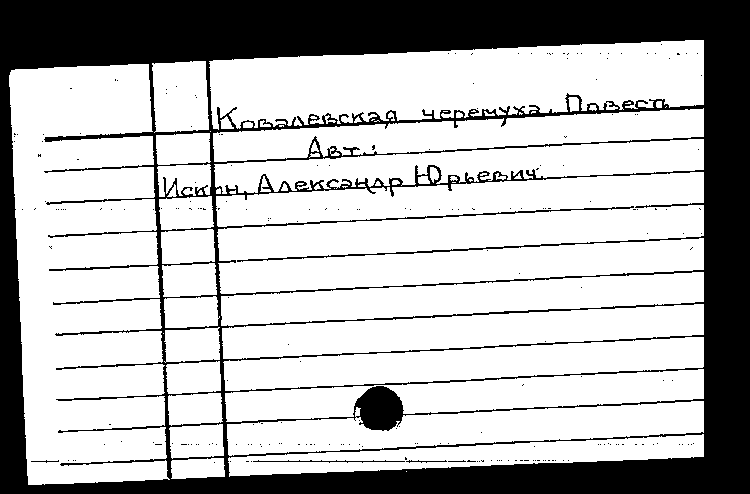 Ковалевская черемуха. Повесть
Авт.:
Искин, Александр Юрьевич.